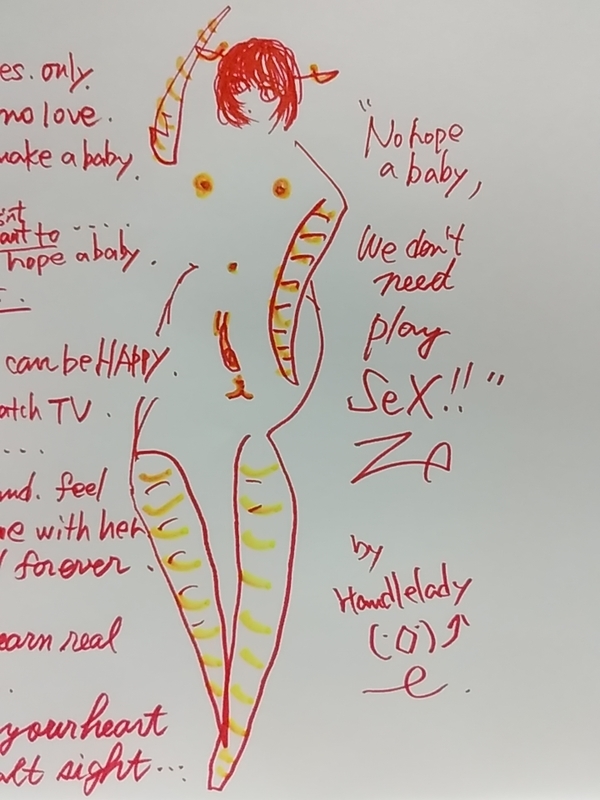 es. only.
no love.
make a baby.
hope a baby.
can be HAPPY.
atch TV.
....
and. feel
me with her
forever.
earn real
your heart
alt sight...
"No hope
a baby,
We don't
need
play
SeX!!"
by
Handlelady